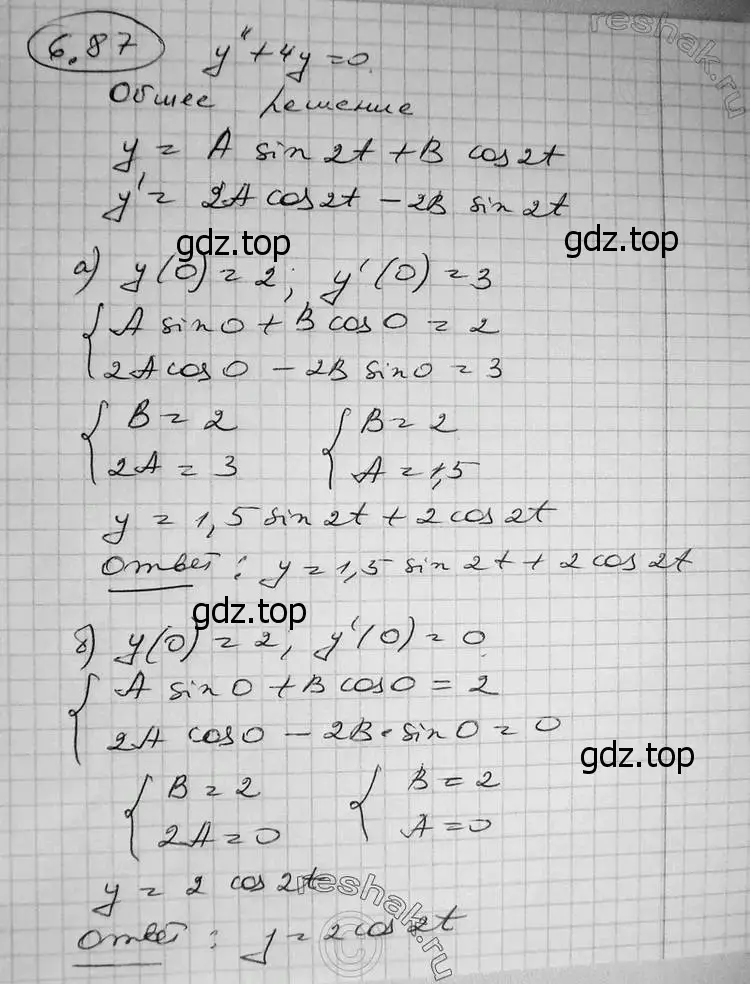 6.87 y'' + 4y = 0.
Общее решение
y = A sin 2t + B cos 2t
y' = 2A cos 2t - 2B sin 2t
gdz.top
а) y(0) = 2; y'(0) = 3
A sin 0 + B cos 0 = 2
2A cos 0 - 2B sin 0 = 3
B = 2 B = 2
2A = 3 A = 1,5
y = 1,5 sin 2t + 2 cos 2t
Ответ: y = 1,5 sin 2t + 2 cos 2t
gdz.top
б) y(0) = 2, y'(0) = 0
A sin 0 + B cos 0 = 2
2A cos 0 - 2B · sin 0 = 0
gdz.top
B = 2 B = 2
2A = 0 A = 0
y = 2 cos 2t
Ответ: y = 2 cos 2t
reshak.ru
reshak.ru